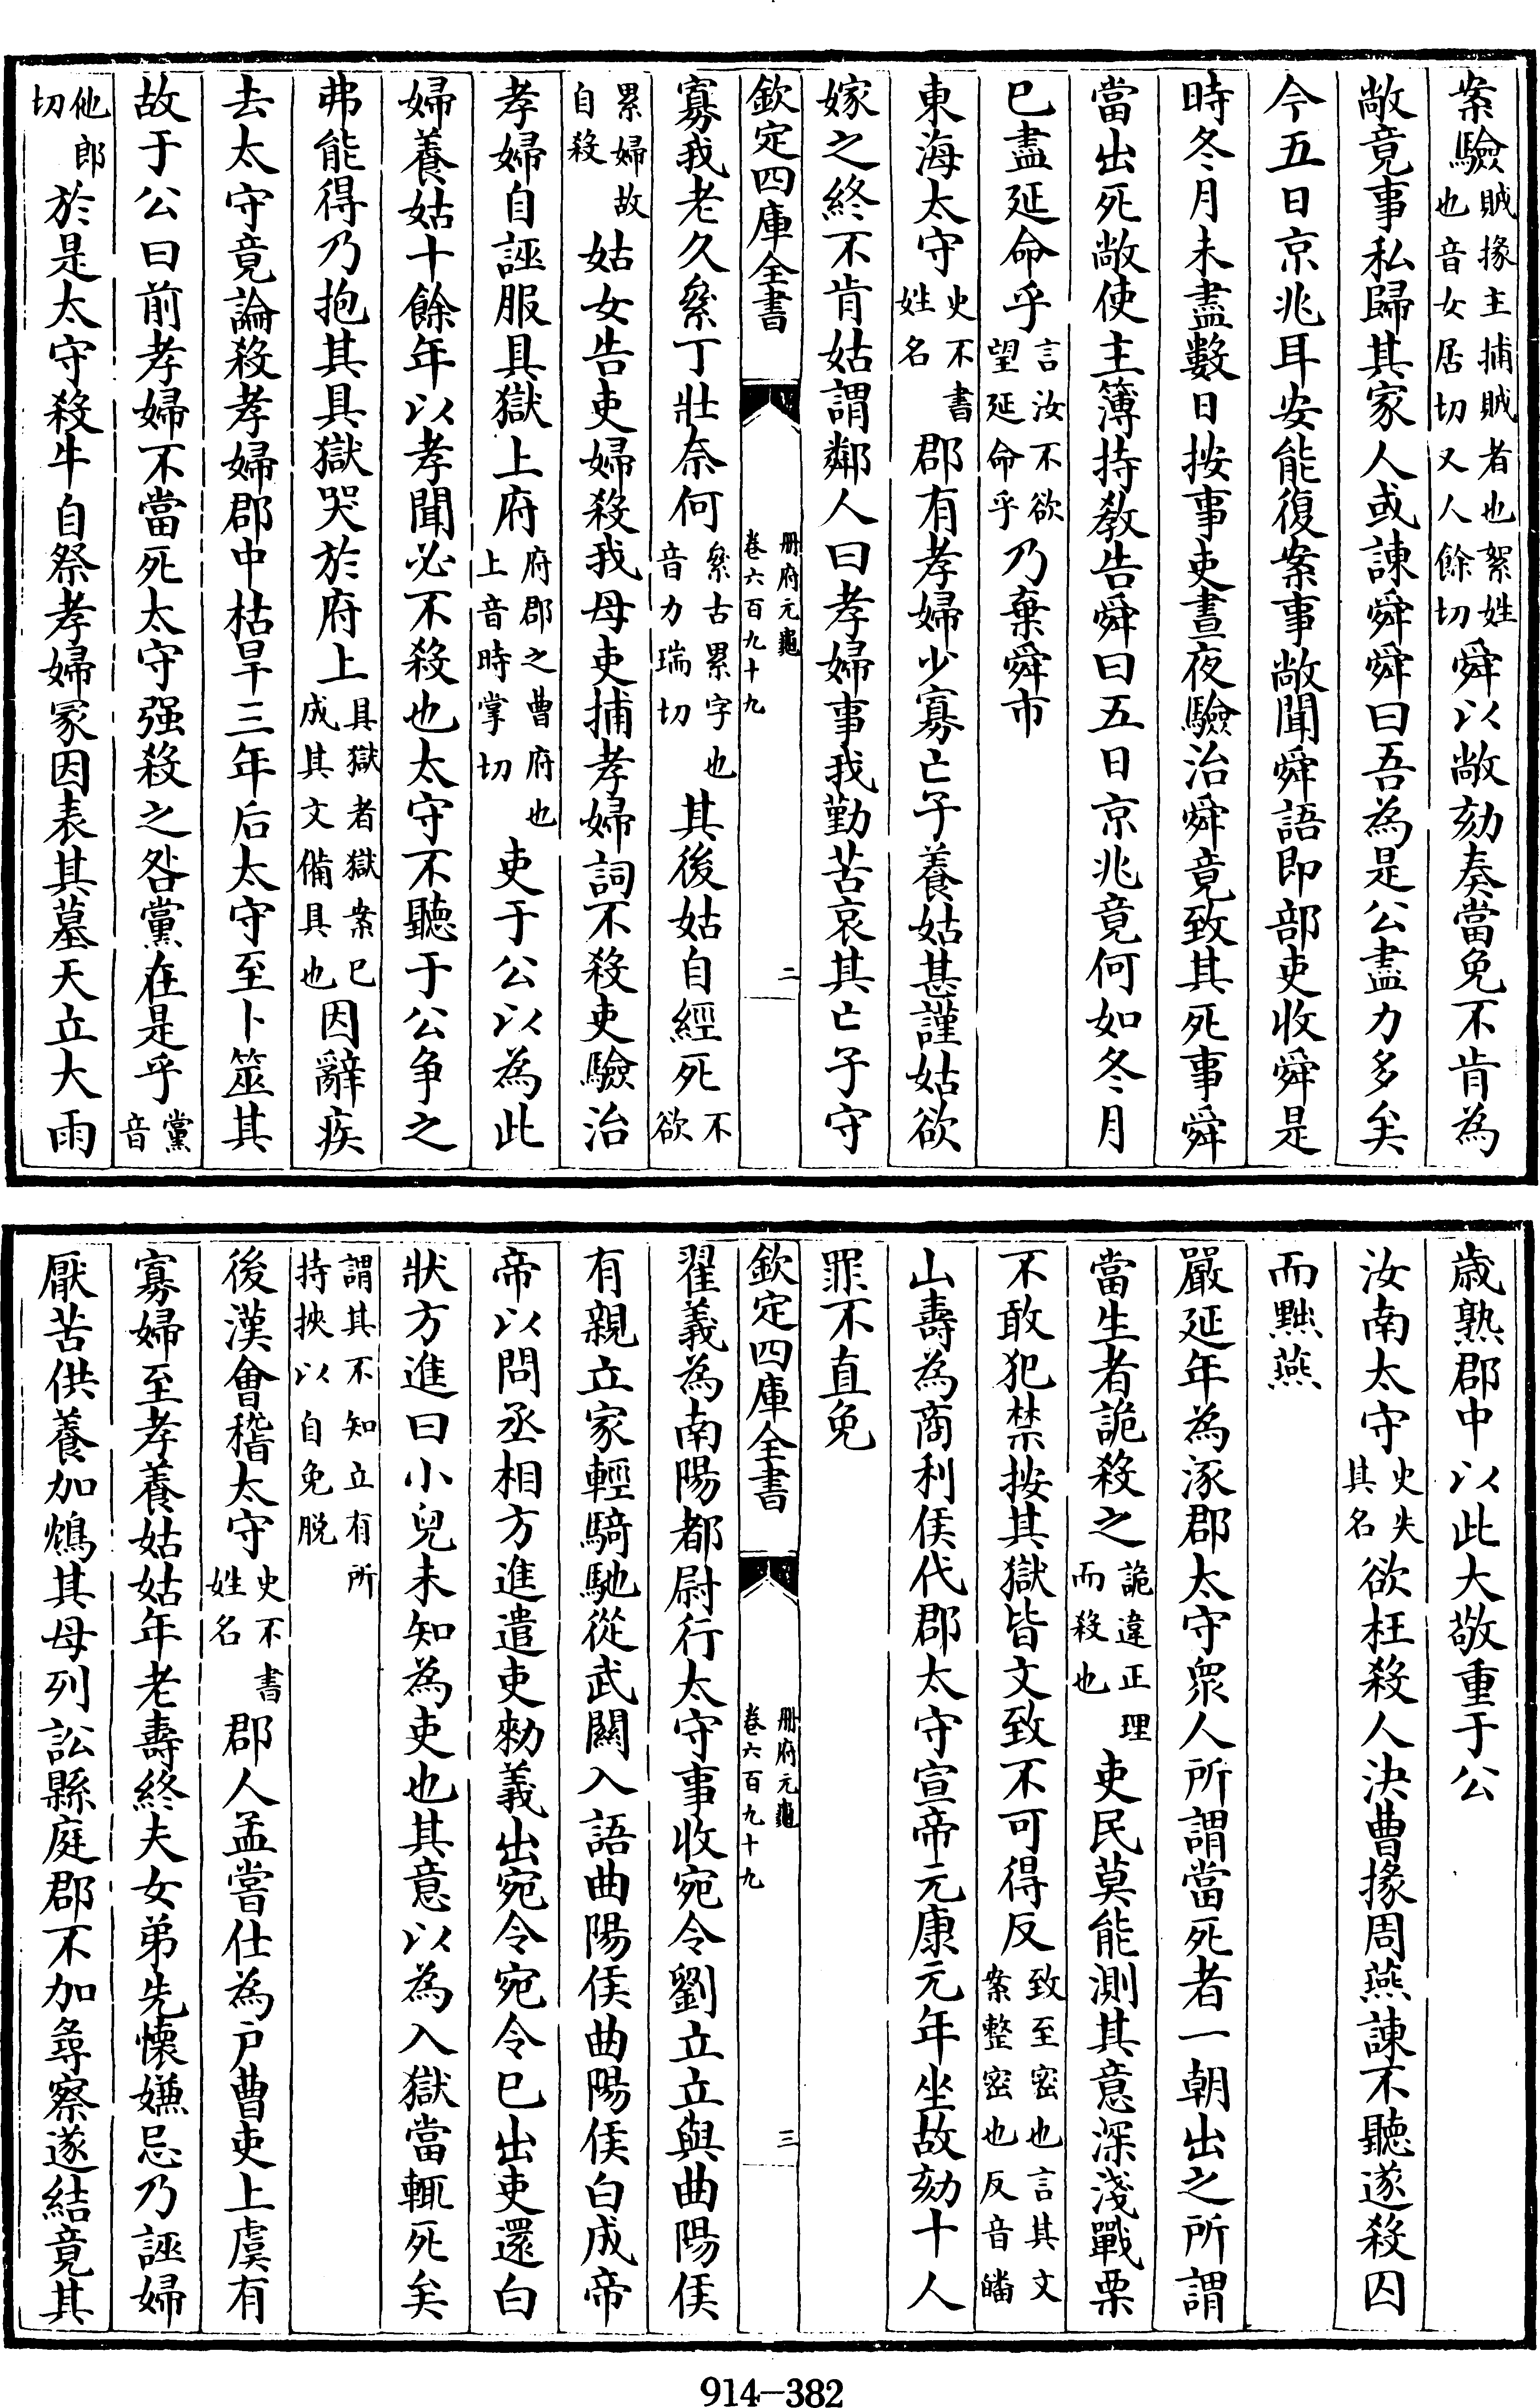 案驗賊掾主捕賊者也絮姓也音女居切又人餘切舜以敞劾奏當免不肯為
敞竟事私歸其家人或諫舜舜曰吾為是公盡力多矣
今五日京兆耳安能復案事敞聞舜語即部吏收舜是
時冬月未盡數日按事吏晝夜驗治舜竟致其死事舜
當出死敞使主簿持教告舜曰五日京兆竟何如冬月
已盡延命乎言汝不欲望延命乎乃棄舜市
東海太守史不書姓名郡有孝婦少寡亡子養姑甚謹姑欲
嫁之終不肯姑謂鄰人曰孝婦事我勤苦哀其亡子守
欽定四庫全書 冊府元龜卷六百九十九 二
寡我老久絫丁壯奈何絫古累字也音力瑞切其後姑自經死不欲
累婦故自殺姑女告吏婦殺我母吏捕孝婦詞不殺吏驗治
孝婦自誣服具獄上府府郡之曹府也上音時掌切吏于公以為此
婦養姑十餘年以孝聞必不殺也太守不聽于公争之
弗能得乃抱其具獄哭於府上具獄者獄案已成其文備具也因辭疾
去太守竟論殺孝婦郡中枯旱三年后太守至卜筮其
故于公曰前孝婦不當死太守强殺之咎黨在是乎黨音
他郎切於是太守殺牛自祭孝婦冢因表其墓天立大雨
歲熟郡中以此大敬重于公
汝南太守史失其名欲枉殺人決曹掾周燕諫不聽遂殺囚
而黜燕
嚴延年為涿郡太守眾人所謂當死者一朝出之所謂
當生者詭殺之詭違正理而殺也吏民莫能測其意深淺戰栗
不敢犯禁按其獄皆文致不可得反致至密也言其文案整密也反音皤
山壽為商利侯代郡太守宣帝元康元年坐故劾十人
罪不直免
欽定四庫全書 冊府元龜卷六百九十九 三
翟義為南陽都尉行太守事收宛令劉立立與曲陽侯
有親立家輕騎馳從武關入語曲陽侯曲陽侯白成帝
帝以問丞相方進遣吏勑義出宛令宛令已出吏還白
狀方進曰小兒未知為吏也其意以為入獄當輒死矣
謂其不知立有所持挾以自免脱
後漢會稽太守史不書姓名郡人孟嘗仕為戶曹吏上虞有
寡婦至孝養姑姑年老壽終夫女弟先懷嫌忌乃誣婦
厭苦供養加鴆其母列訟縣庭郡不加尋察遂結竟其
914-382